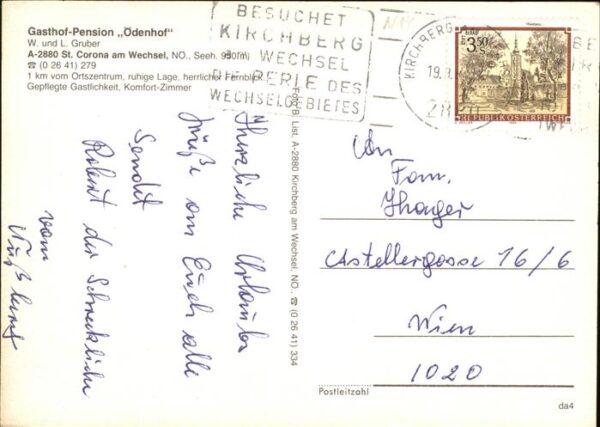 Gasthof-Pension „Ödenhof"
W. und L. Gruber
A-2880 St. Corona am Wechsel, NO., Seeh. 950(m)
☎ (0 26 41) 279
1 km vom Ortszentrum, ruhige Lage, herrlicher Fernblick
Gepflegte Gastlichkeit, Komfort-Zimmer
BESUCHET
KIRCHBERG
WECHSEL
DIE PERLE DES
WECHSELGEBIETES
KIRCHBERG
19.
3.50
S
REPUBLIK ÖSTERREICH
Foto B. List, A-2880 Kirchberg am Wechsel, NO., ☎ (0 26 41) 334
Herzliche Urlaubs
grüße an Euch alle
Sendet
Robert der Schreckliche
vom
An
Fam.
Astellergasse 16/6
Wien
1020
Postleitzahl
da4